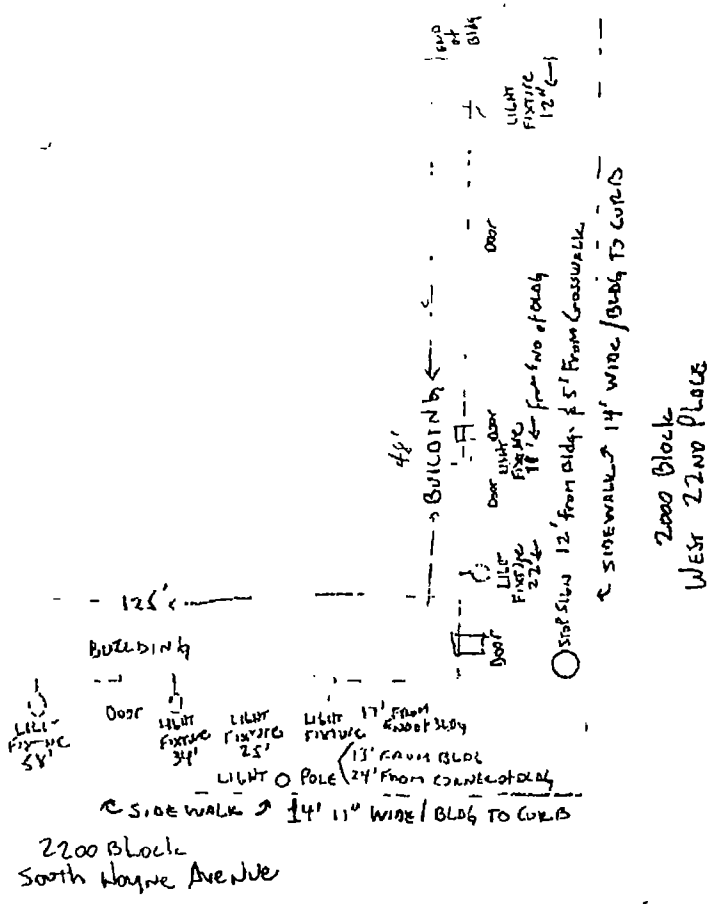 END
of
Bldg
LIGHT
FIXTURE
12"
Door
48'
BUILDING
Door
Door
LIGHT
FIXTURE
11' From END of BLDG
LIGHT
FIXTURE
22'
Door
STOP SIGN 12' From Bldg. & 5' From CrossWALK
SIDEWALK 14' WIDE/BLDG TO CURB
2000 Block
WEST 22ND PLACE
125'
BUILDING
LIGHT
FIXTURE
58'
Door
LIGHT
FIXTURE
34'
LIGHT
FIXTURE
25'
LIGHT
FIXTURE
17' FROM
END OF BLDG
LIGHT POLE
13' FROM BLDG
24' FROM CORNER OF BLDG
SIDEWALK 14' 11" WIDE/BLDG TO CURB
2200 Block
South Hoyne Avenue